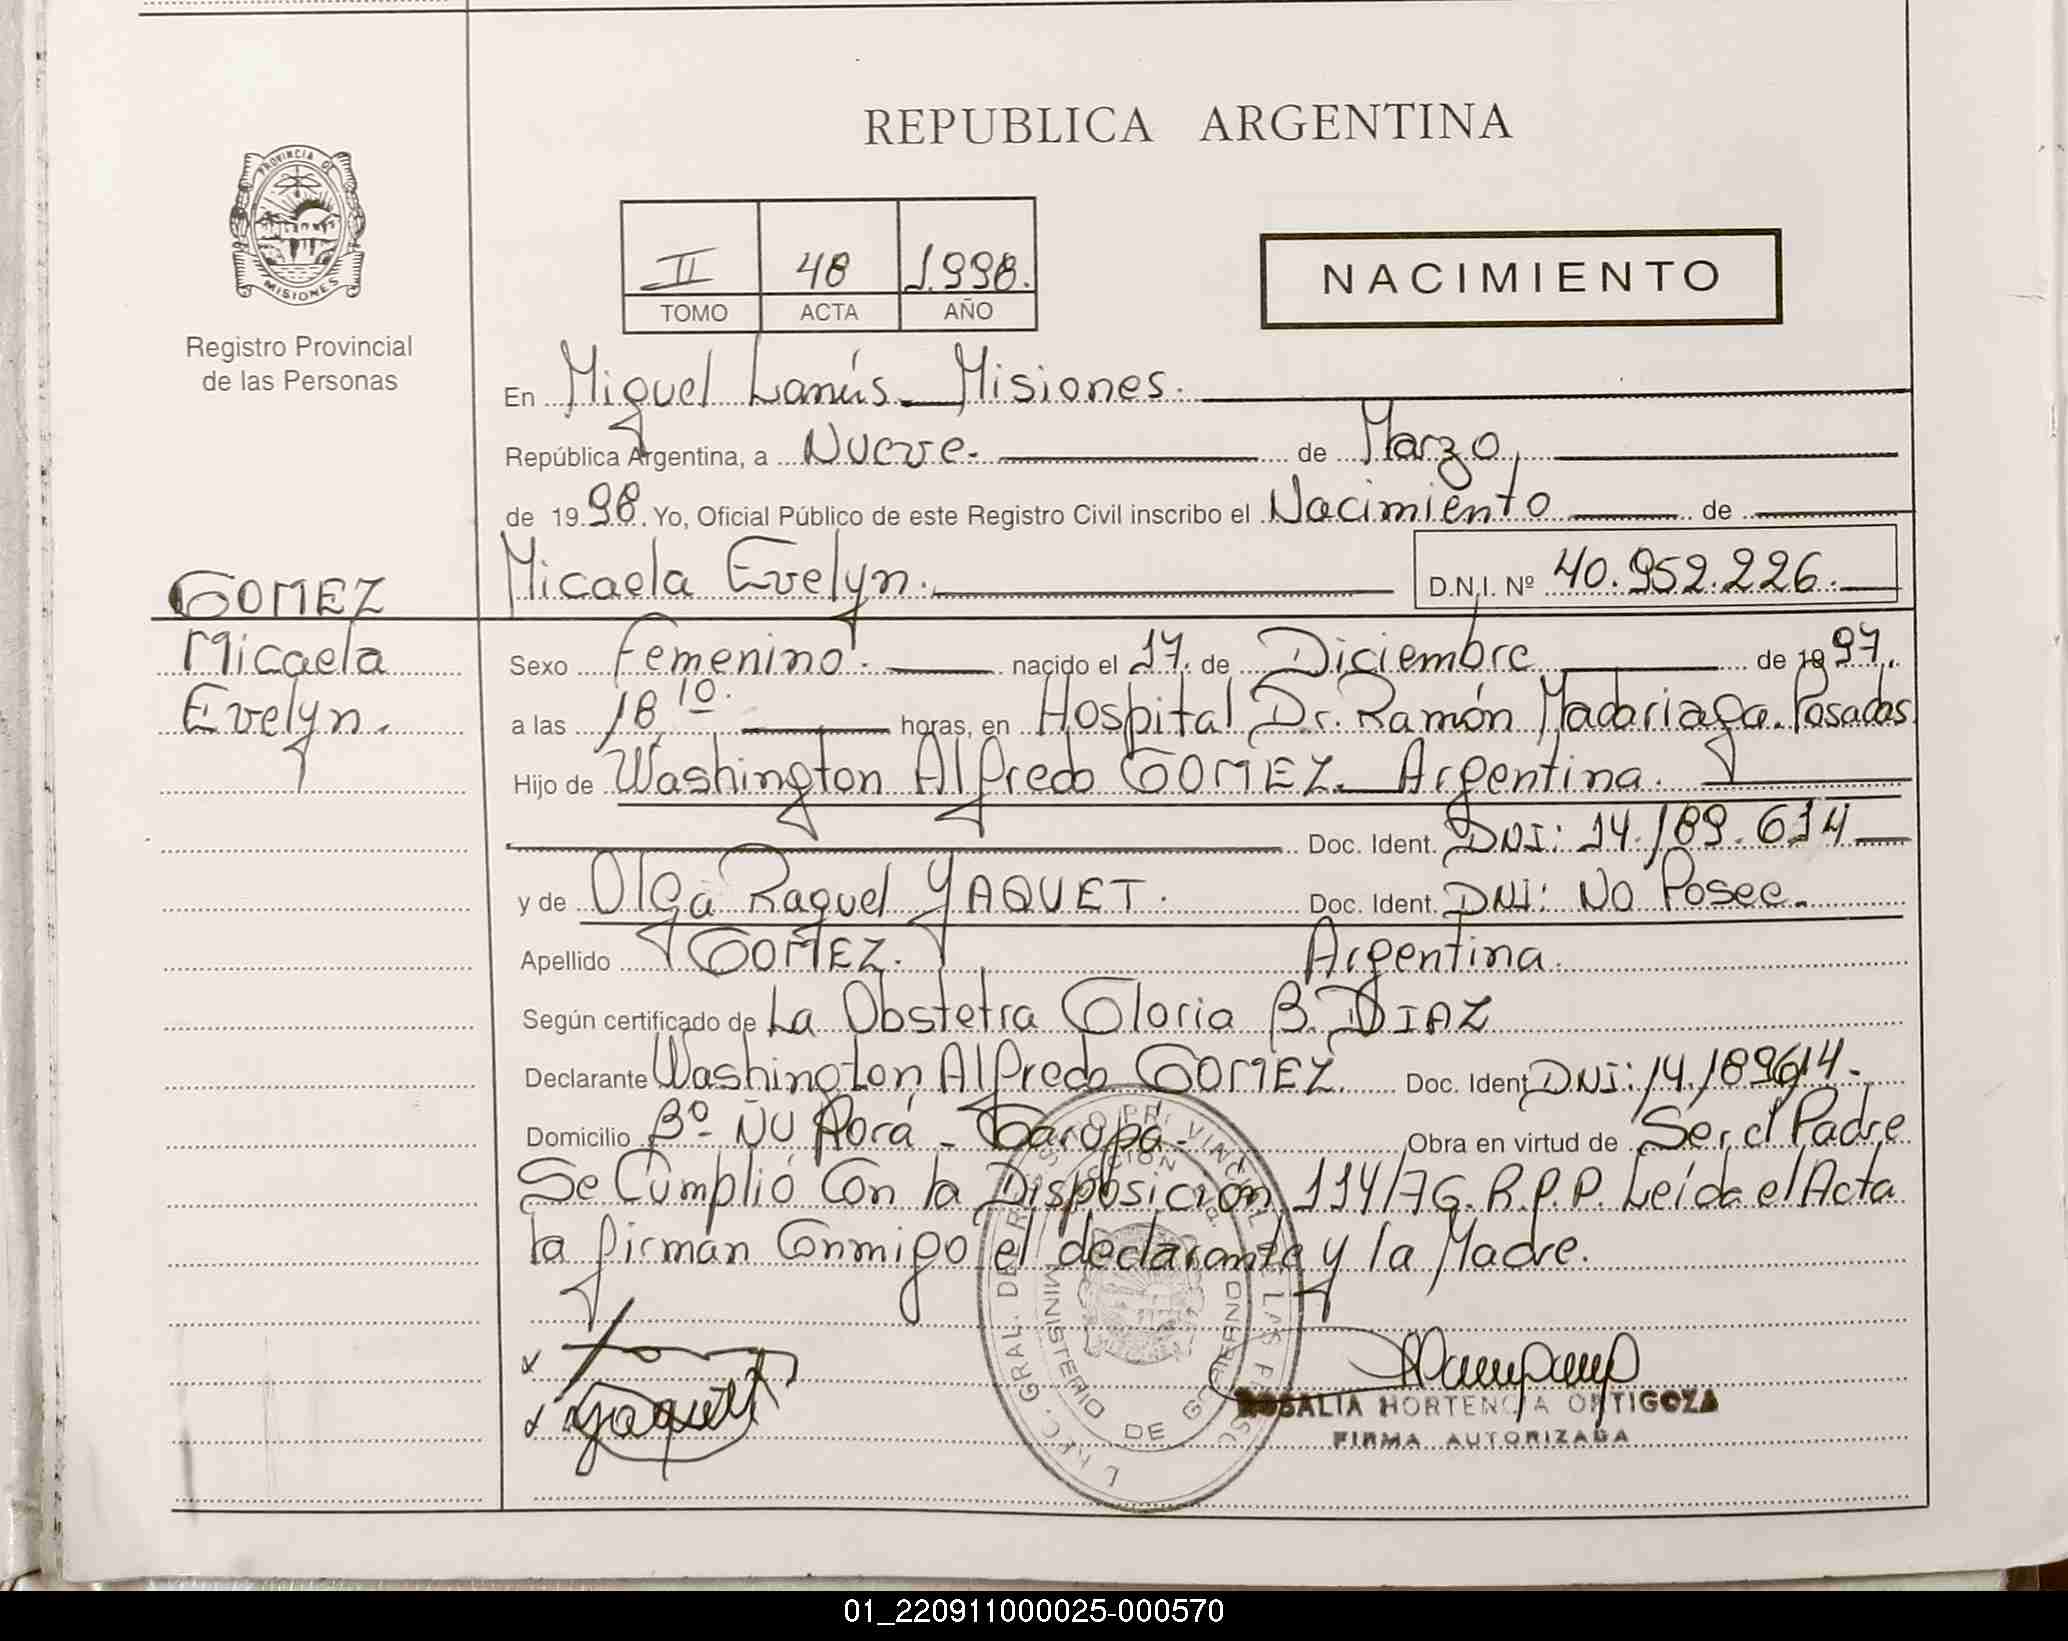 REPUBLICA ARGENTINA
PROVINCIA DE
MISIONES
Registro Provincial
de las Personas
II 48 1.998.
TOMO ACTA AÑO
NACIMIENTO
En Miguel Lanús - Misiones.
República Argentina, a Nueve. de Marzo
de 1998. Yo, Oficial Público de este Registro Civil inscribo el Nacimiento de
Micaela Evelyn. D.N.I. Nº 40.952.226.
GOMEZ
Micaela
Evelyn.
Sexo Femenino. nacido el 17. de Diciembre de 1997.
a las 18,10. horas, en Hospital Dr. Ramón Madariaga. Posadas
Hijo de Washington Alfredo GOMEZ. Argentina.
Doc. Ident. DNI: 14.189.614
y de Olga Raquel YAQUET. Doc. Ident. DNI: No Posee.
Apellido GOMEZ. Argentina.
Según certificado de La Obstetra Gloria B. DIAZ
Declarante Washington Alfredo GOMEZ. Doc. Ident. DNI: 14.189614.
Domicilio Bº ÑU Porá - Garupá. Obra en virtud de Ser el Padre
Se Cumplió Con la Disposición 114/76. R.P.P. Leída el Acta
la firman Conmigo el declarante y la Madre.
x
x Yaquet
ROSALIA HORTENCIA ORTIGOZA
FIRMA AUTORIZADA
MINISTERIO DE GOBIERNO
01_220911000025-000570